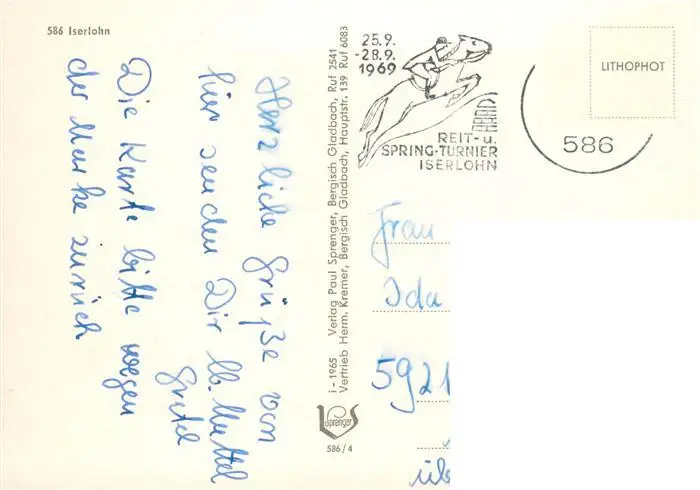 586 Iserlohn
Herzliche Grüße von
hier senden Dir lb. Muttel
Gretel
Die Karte bitte wegen
der Marke zurück
i - 1965 Verlag Paul Sprenger, Bergisch Gladbach, Ruf 2541
Vertrieb Herm. Kremer, Bergisch Gladbach, Hauptstr. 139 Ruf 6083
Sprenger
586/4
25.9.
-28.9.
1969
REIT- u.
SPRING-TURNIER
ISERLOHN
586
LITHOPHOT
Frau
Ida
5921
üb